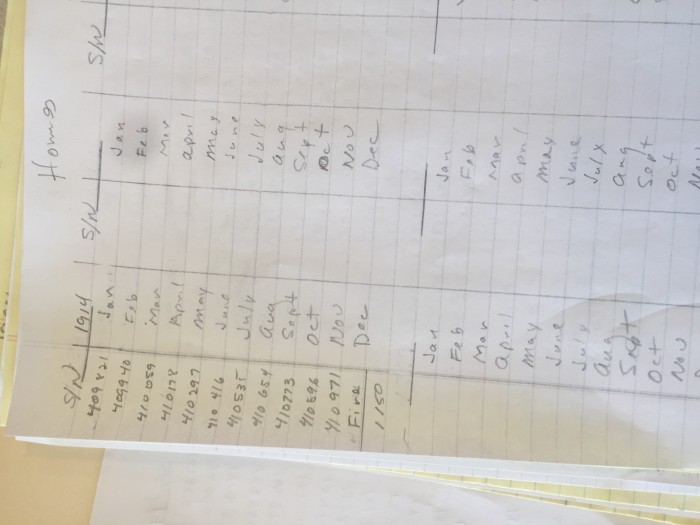 Homes
S/N 1914 S/N S/N
409821 Jan Jan
409940 Feb Feb
410059 Mar Mar
410178 April april
410297 May May
410416 June June
410535 July July
410654 Aug aug
410773 Sept Sept
410896 Oct Oct
410971 Nov Nov
Fire Dec Dec
1150
Jan Jan
Feb Feb
Mar Mar
april april
May May
June June
July July
aug aug
Sept Sept
Oct Oct
Nov